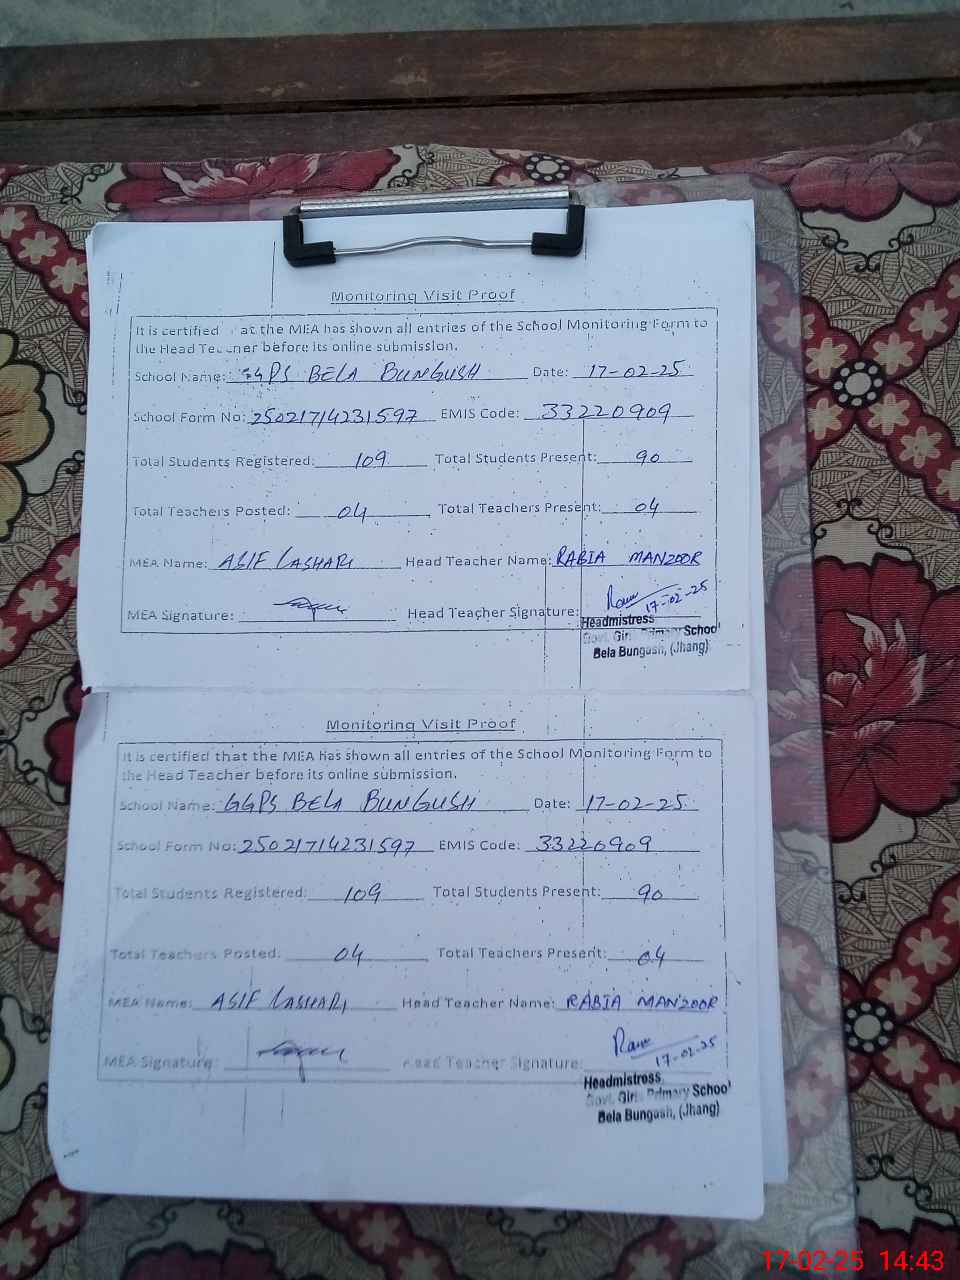 Monitoring Visit Proof
It is certified at the MEA has shown all entries of the School Monitoring Form to
the Head Teacher before its online submission.
School Name: GGPS BELA BUNGUSH Date: 17-02-25
School Form No: 25021714231597 EMIS Code: 33220909
Total Students Registered: 109 Total Students Present: 90
Total Teachers Posted: 04 Total Teachers Present: 04
MEA Name: ASIF LASHARI Head Teacher Name: RABIA MANZOOR
MEA Signature: Head Teacher Signature: 17-02-25
Headmistress
Govt. Girls Primary School
Bela Bungush, (Jhang)
Monitoring Visit Proof
It is certified that the MEA has shown all entries of the School Monitoring Form to
the Head Teacher before its online submission.
School Name: GGPS BELA BUNGUSH Date: 17-02-25
School Form No: 25021714231597 EMIS Code: 33220909
Total Students Registered: 109 Total Students Present: 90
Total Teachers Posted: 04 Total Teachers Present: 04
MEA Name: ASIF LASHARI Head Teacher Name: RABIA MANZOOR
MEA Signature: Head Teacher Signature: 17-02-25
Headmistress
Govt. Girls Primary School
Bela Bungush, (Jhang)
17-02-25 14:43